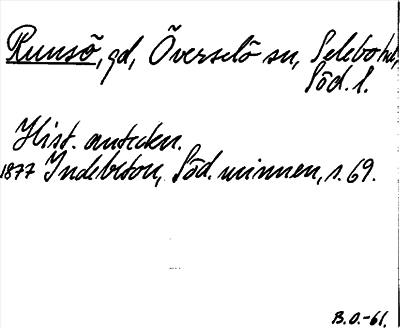 Runsö, gd, Överselö sn, Selebo hd,
Söd. l.
Hist. anteckn.
1877 Indebetou, Söd. minnen, s. 69.
B.O.-61.